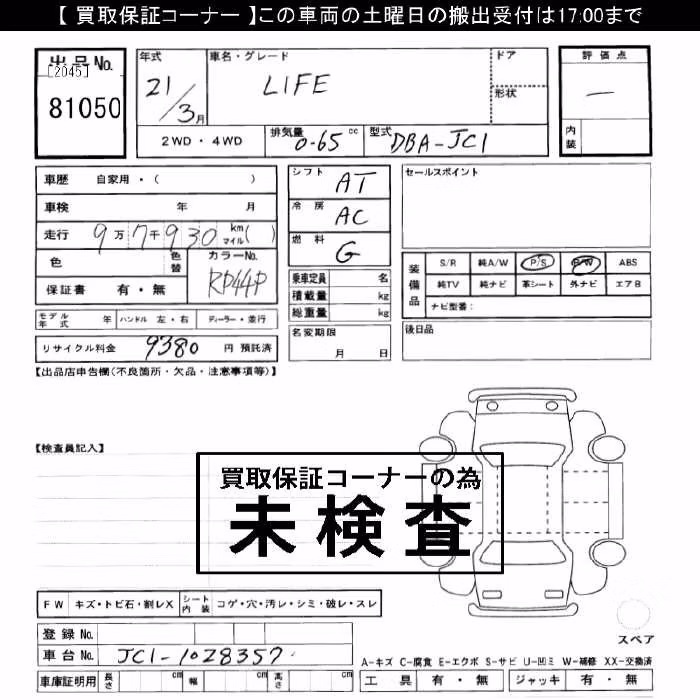 【 買取保証コーナー 】この車両の土曜日の搬出受付は17:00まで
出品No. [2045] 81050
年式 21/3月
車名・グレード LIFE
ドア
形状
評価点 ―
内装
2WD・4WD 排気量 0.65 cc 型式 DBA-JC1
車歴 自家用・( )
車検 年 月
走行 9万7千930 km マイル( )
色 色替 カラーNo. RP44P
保証書 有・無
モデル年式 年 ハンドル 左・右 ディーラー・並行
リサイクル料金 9380 円 預託済
シフト AT
冷房 AC
燃料 G
乗車定員 名
積載量 kg
総重量 kg
名変期限 月 日
セールスポイント
装備品 S/R 純A/W P/S P/W ABS
純TV 純ナビ 革シート 外ナビ エアB
ナビ型番:
後日品
【出品店申告欄(不良箇所・欠品・注意事項等)】
【検査員記入】
買取保証コーナーの為
未検査
FW キズ・トビ石・割レX シート内装 コゲ・穴・汚レ・シミ・破レ・スレ
登録No.
車台No. JC1-1028357
車庫証明用 長さ cm 幅 cm 高さ cm
スペア
A-キズ C-腐食 E-エクボ S-サビ U-凹ミ W-補修 XX-交換済
工具 有・無 ジャッキ 有・無